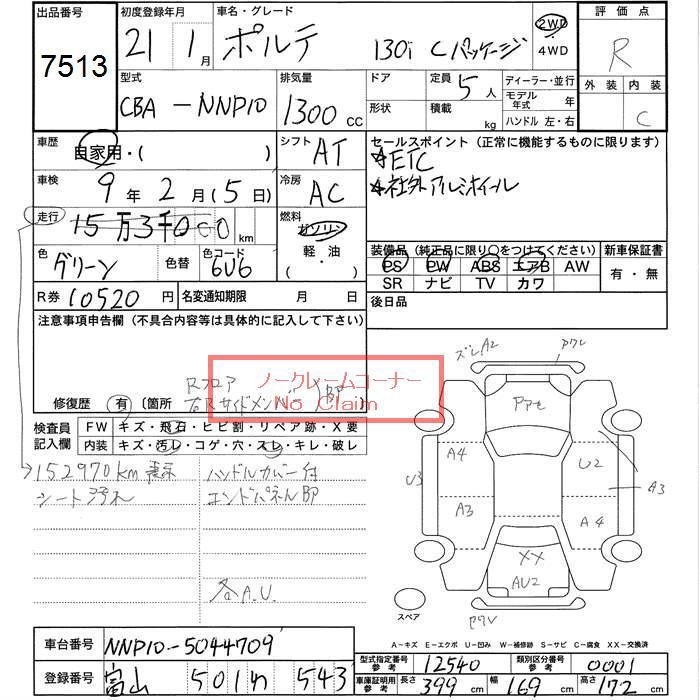 出品番号 7513
初度登録年月 21年 1月
車名・グレード ポルテ 130i Cパッケージ
2WD ・ 4WD
評価点 R
外装 内装 C
型式 CBA-NNP10
排気量 1300 CC
ドア 形状
定員 5人 積載 kg
ディーラー・並行
モデル年式 年
ハンドル 左・右
車歴 自家用・( )
シフト AT
セールスポイント (正常に機能するものに限ります)
ETC
社外アルミホイール
車検 9年 2月 (5日)
冷房 AC
走行 15万3千000 km
燃料 ガソリン 軽・油 ( )
色 グリーン 色替 色コード 6U6
装備品 (純正品に限り○をつけてください) 新車保証書
PS PW ABS エアB AW
SR ナビ TV カワ
有・無
R券 10520円 名変通知期限 月 日
後日品
注意事項申告欄 (不具合内容等は具体的に記入して下さい)
ノークレームコーナー
No Claim
修復歴 有 〔箇所 Rフロア
右Rサイドメンバー
検査員記入欄
FW キズ・飛石・ヒビ割・リペア跡・X要
内装 キズ・汚レ・コゲ・穴・スレ・キレ・破レ
152970km表示
シート汚れ
ハンドルカバー付
エンドパネル即
各A.U.
ズレA2
ワレ
A4
U2
U3
A3
A3
A4
XX
AU2
ワレ
スペア
A-キズ E-エクボ U-凹み W-補修跡 S-サビ C-腐食 XX-交換済
車台番号 NNP10-5044709
登録番号 富山 501 わ 543
型式指定番号 参考 12540 類別区分番号 参考 0001
車庫証明用 参考 長さ 399cm 幅 169cm 高さ 172cm